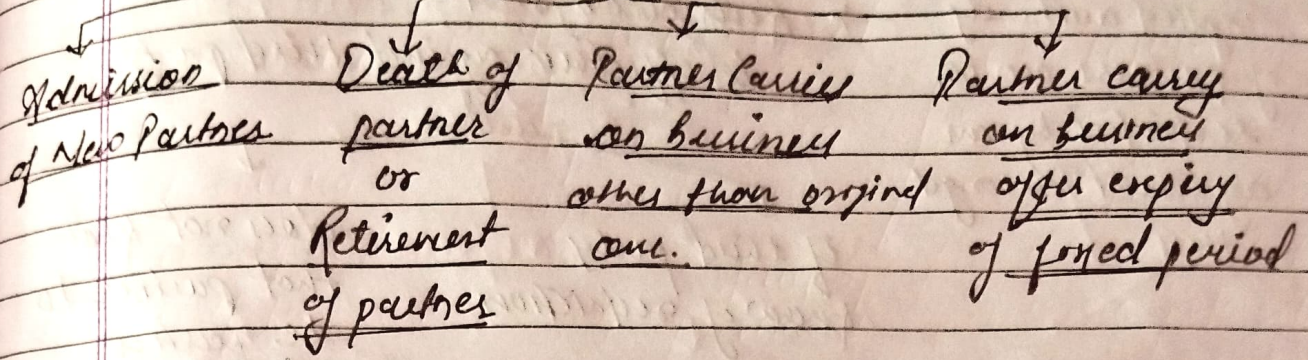 Admission
of New Partner
Death of
partner
or
Retirement
of partner
Partner Carries
on business
other than original
one.
Partner carry
on business
after expiry
of fixed period